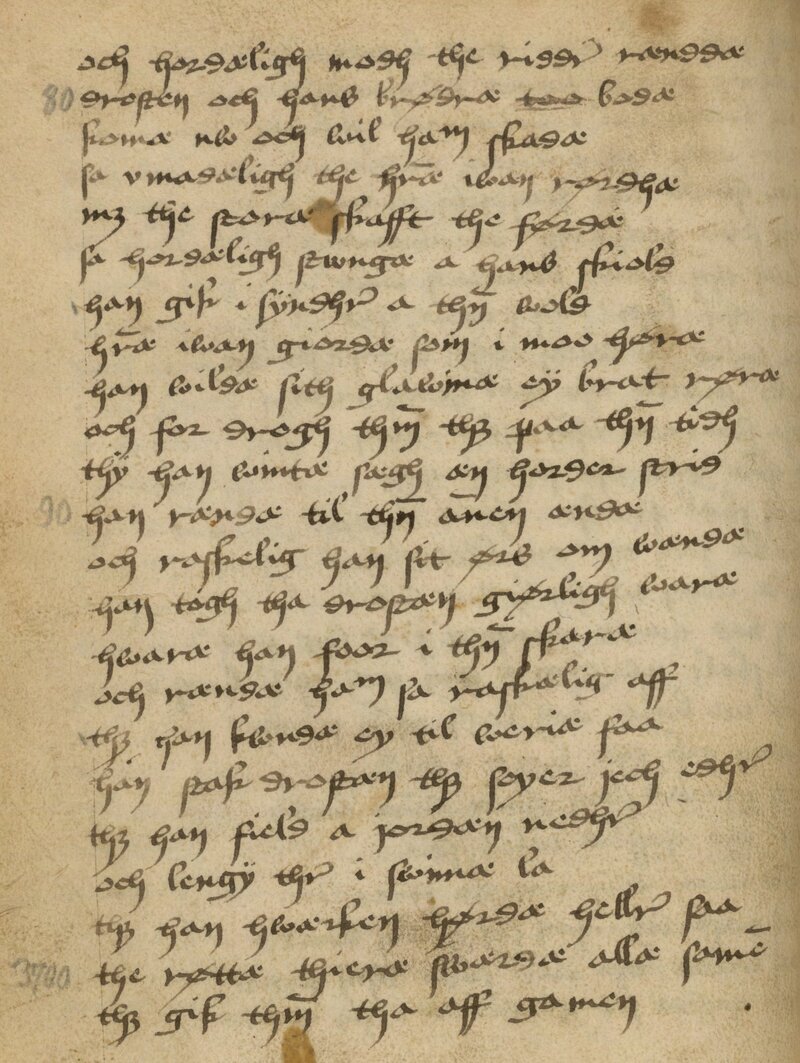 och hordæligh modh the riddr̄ rænddæ
80 drosten och hans brødræ too bodæ
komæ nw och wil ham skadæ
sa vmadæligh the hr̄æ iwan rørdhæ
mz the storæ skafft the førdæ
sa hordæligh stwngæ a hans skiold
han gik i syndhr̄ a thn̄ wold
hr̄æ iwan giordæ som i moo høræ
han wildæ sith glawinæ ey brat røræ
och for drogh thm̄ thz paa thn̄ tidh
thÿ han wintæ sægh æn horder strid
90 han rændæ til thn̄ anēn ændæ
och raskelig han sit ørs om wændæ
han togh tha drostæn giørligh waræ
hwaræ han foor i thn̄ skaræ
och rændæ ham sa raskælig aff
thz han kwndæ ey til weriæ faa
han stak drostæn thz seyer jech edhr̄
thz han field a jordæn nedhr̄
och lengÿ thr̄ i swinnæ la
thz han hwærken hørdæ hellr̄ saa
3700 the røttæ thieræ swærdæ allæ samē
thz gik thm̄ tha aff gamen